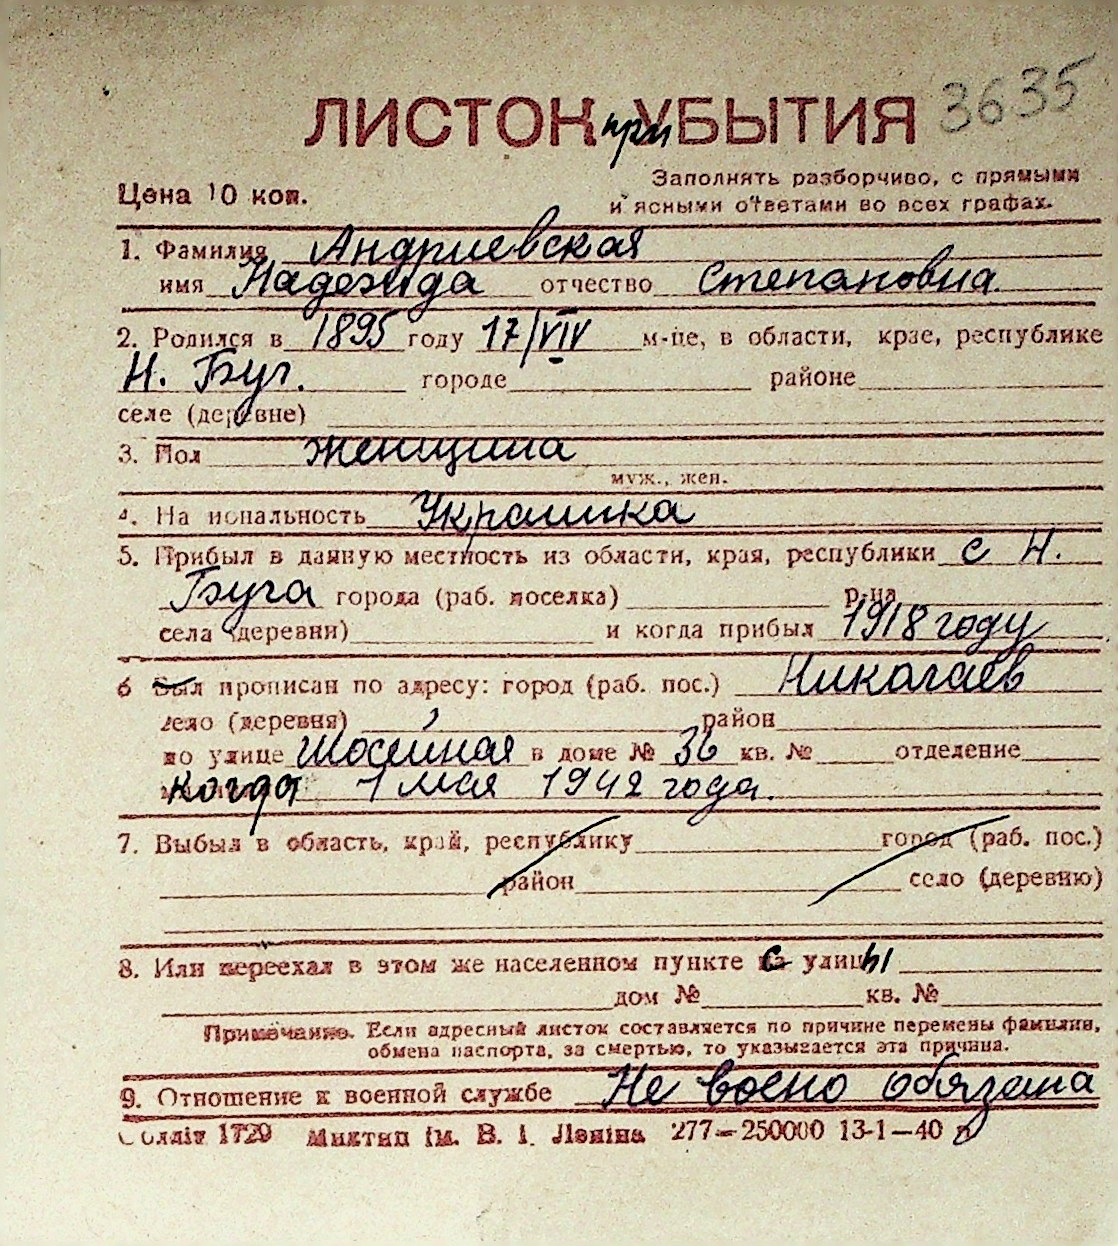 3635
ЛИСТОК при УБЫТИЯ
Цена 10 коп.
Заполнять разборчиво, с прямыми
и ясными ответами во всех графах.
1. Фамилия Андриевская
имя Надежда отчество Степановна.
2. Родился в 1895 году 17/VIV м-це, в области, крае, республике
Н. Буг. городе районе
селе (деревне)
3. Пол женщина
муж., жен.
4. На иональность Украинка
5. Прибыл в данную местность из области, края, республики с Н.
Буга города (раб. поселка) р-на
села (деревни) и когда прибыл 1918 году
6 Был прописан по адресу: город (раб. пос.) Николаев
село (деревня) район
по улице Шосейная в доме № 36 кв. № отделение
когда 1 мая 1942 года.
7. Выбыл в область, край, республику город (раб. пос.)
район село (деревню)
8. Или переехал в этом же населенном пункте с улицы
дом № кв. №
Примечание. Если адресный листок составляется по причине перемены фамилии,
обмена паспорта, за смертью, то указывается эта причина.
9. Отношение к военной службе Не воено обязана
1729 Миктип ім. В. І. Леніна 277—250000 13-1—40